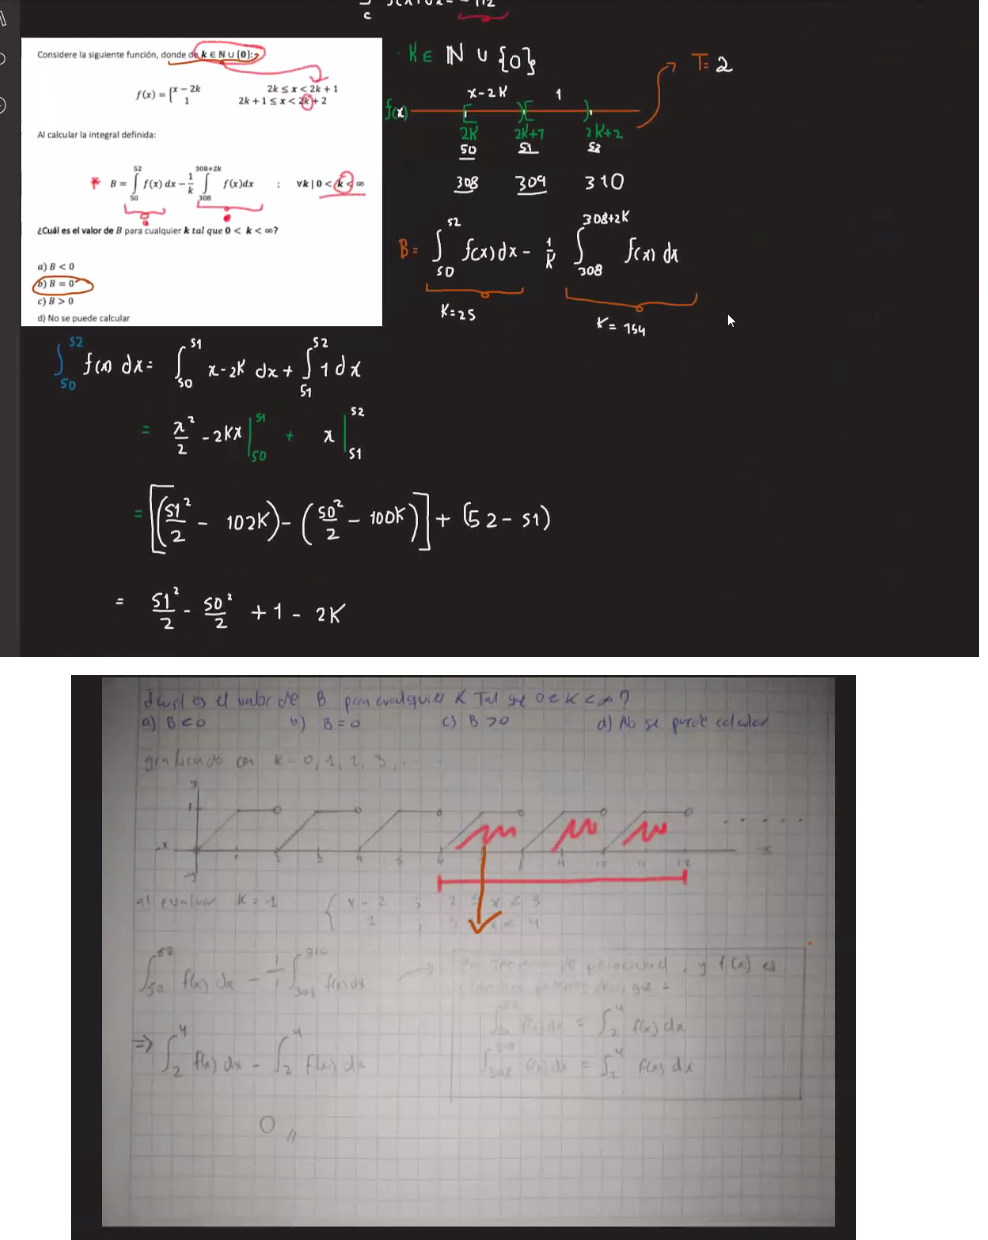 Considere la siguiente función, donde de k ∈ N ∪ {0}:
f(x) = { x − 2k    2k ≤ x < 2k + 1
1    2k + 1 ≤ x < 2k + 2
Al calcular la integral definida:
* B = ∫_{50}^{52} f(x) dx − 1/k ∫_{308}^{308+2k} f(x)dx ; ∀k | 0 < k < ∞
¿Cuál es el valor de B para cualquier k tal que 0 < k < ∞?
a) B < 0
b) B = 0
c) B > 0
d) No se puede calcular
· K ∈ ℕ ∪ {0}
T = 2
x-2K    1
f(x)
2K    2K+1    2K+2
50    51    52
308    309    310
B = ∫_{50}^{52} f(x) dx - 1/K ∫_{308}^{308+2K} f(x) dx
K=25    K=154
∫_{50}^{52} f(x) dx = ∫_{50}^{51} x-2K dx + ∫_{51}^{52} 1 dx
= x²/2 - 2Kx |_{50}^{51} + x |_{51}^{52}
= [(51²/2 - 102K) - (50²/2 - 100K)] + (52 - 51)
= 51²/2 - 50²/2 + 1 - 2K
es el valor de B para cualquier K Tal que 0 < K < ∞ ?
a) B < 0    b) B = 0    c) B > 0    d) No se puede calcular
graficando con K = 0, 1, 2, 3, ...
al evaluar K = 1    { x - 2 ; 2 ≤ x < 3
1 ; 3 x < 4
∫_{50}^{52} f(x) dx - 1/1 ∫_{308}^{310} f(x) dx
y f(x) es
⇒ ∫_2^4 f(x) dx - ∫_2^4 f(x) dx
= ∫_2^4 f(x) dx
∫_{308}^{310} f(x) dx = ∫_2^4 f(x) dx
0 //